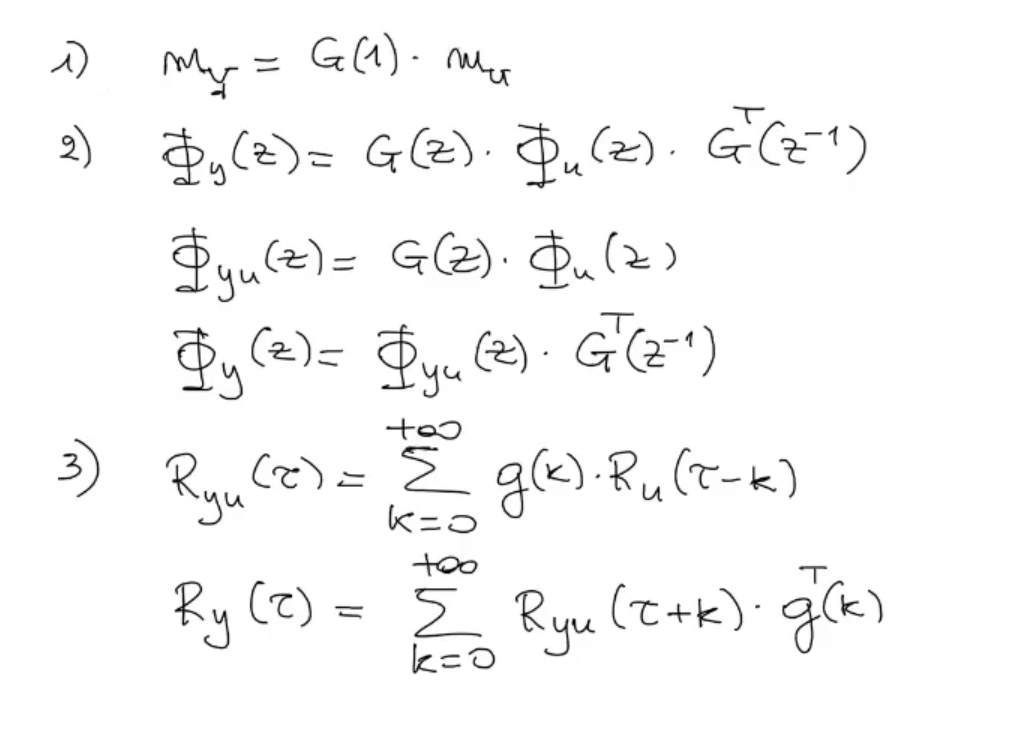 1) m_y = G(1) · m_u
2) Φ_y(z) = G(z) · Φ_u(z) · G^T(z^-1)
Φ_yu(z) = G(z) · Φ_u(z)
Φ_y(z) = Φ_yu(z) · G^T(z^-1)
3) R_yu(τ) = Σ_{k=0}^{+∞} g(k) · R_u(τ-k)
R_y(τ) = Σ_{k=0}^{+∞} R_yu(τ+k) · g^T(k)